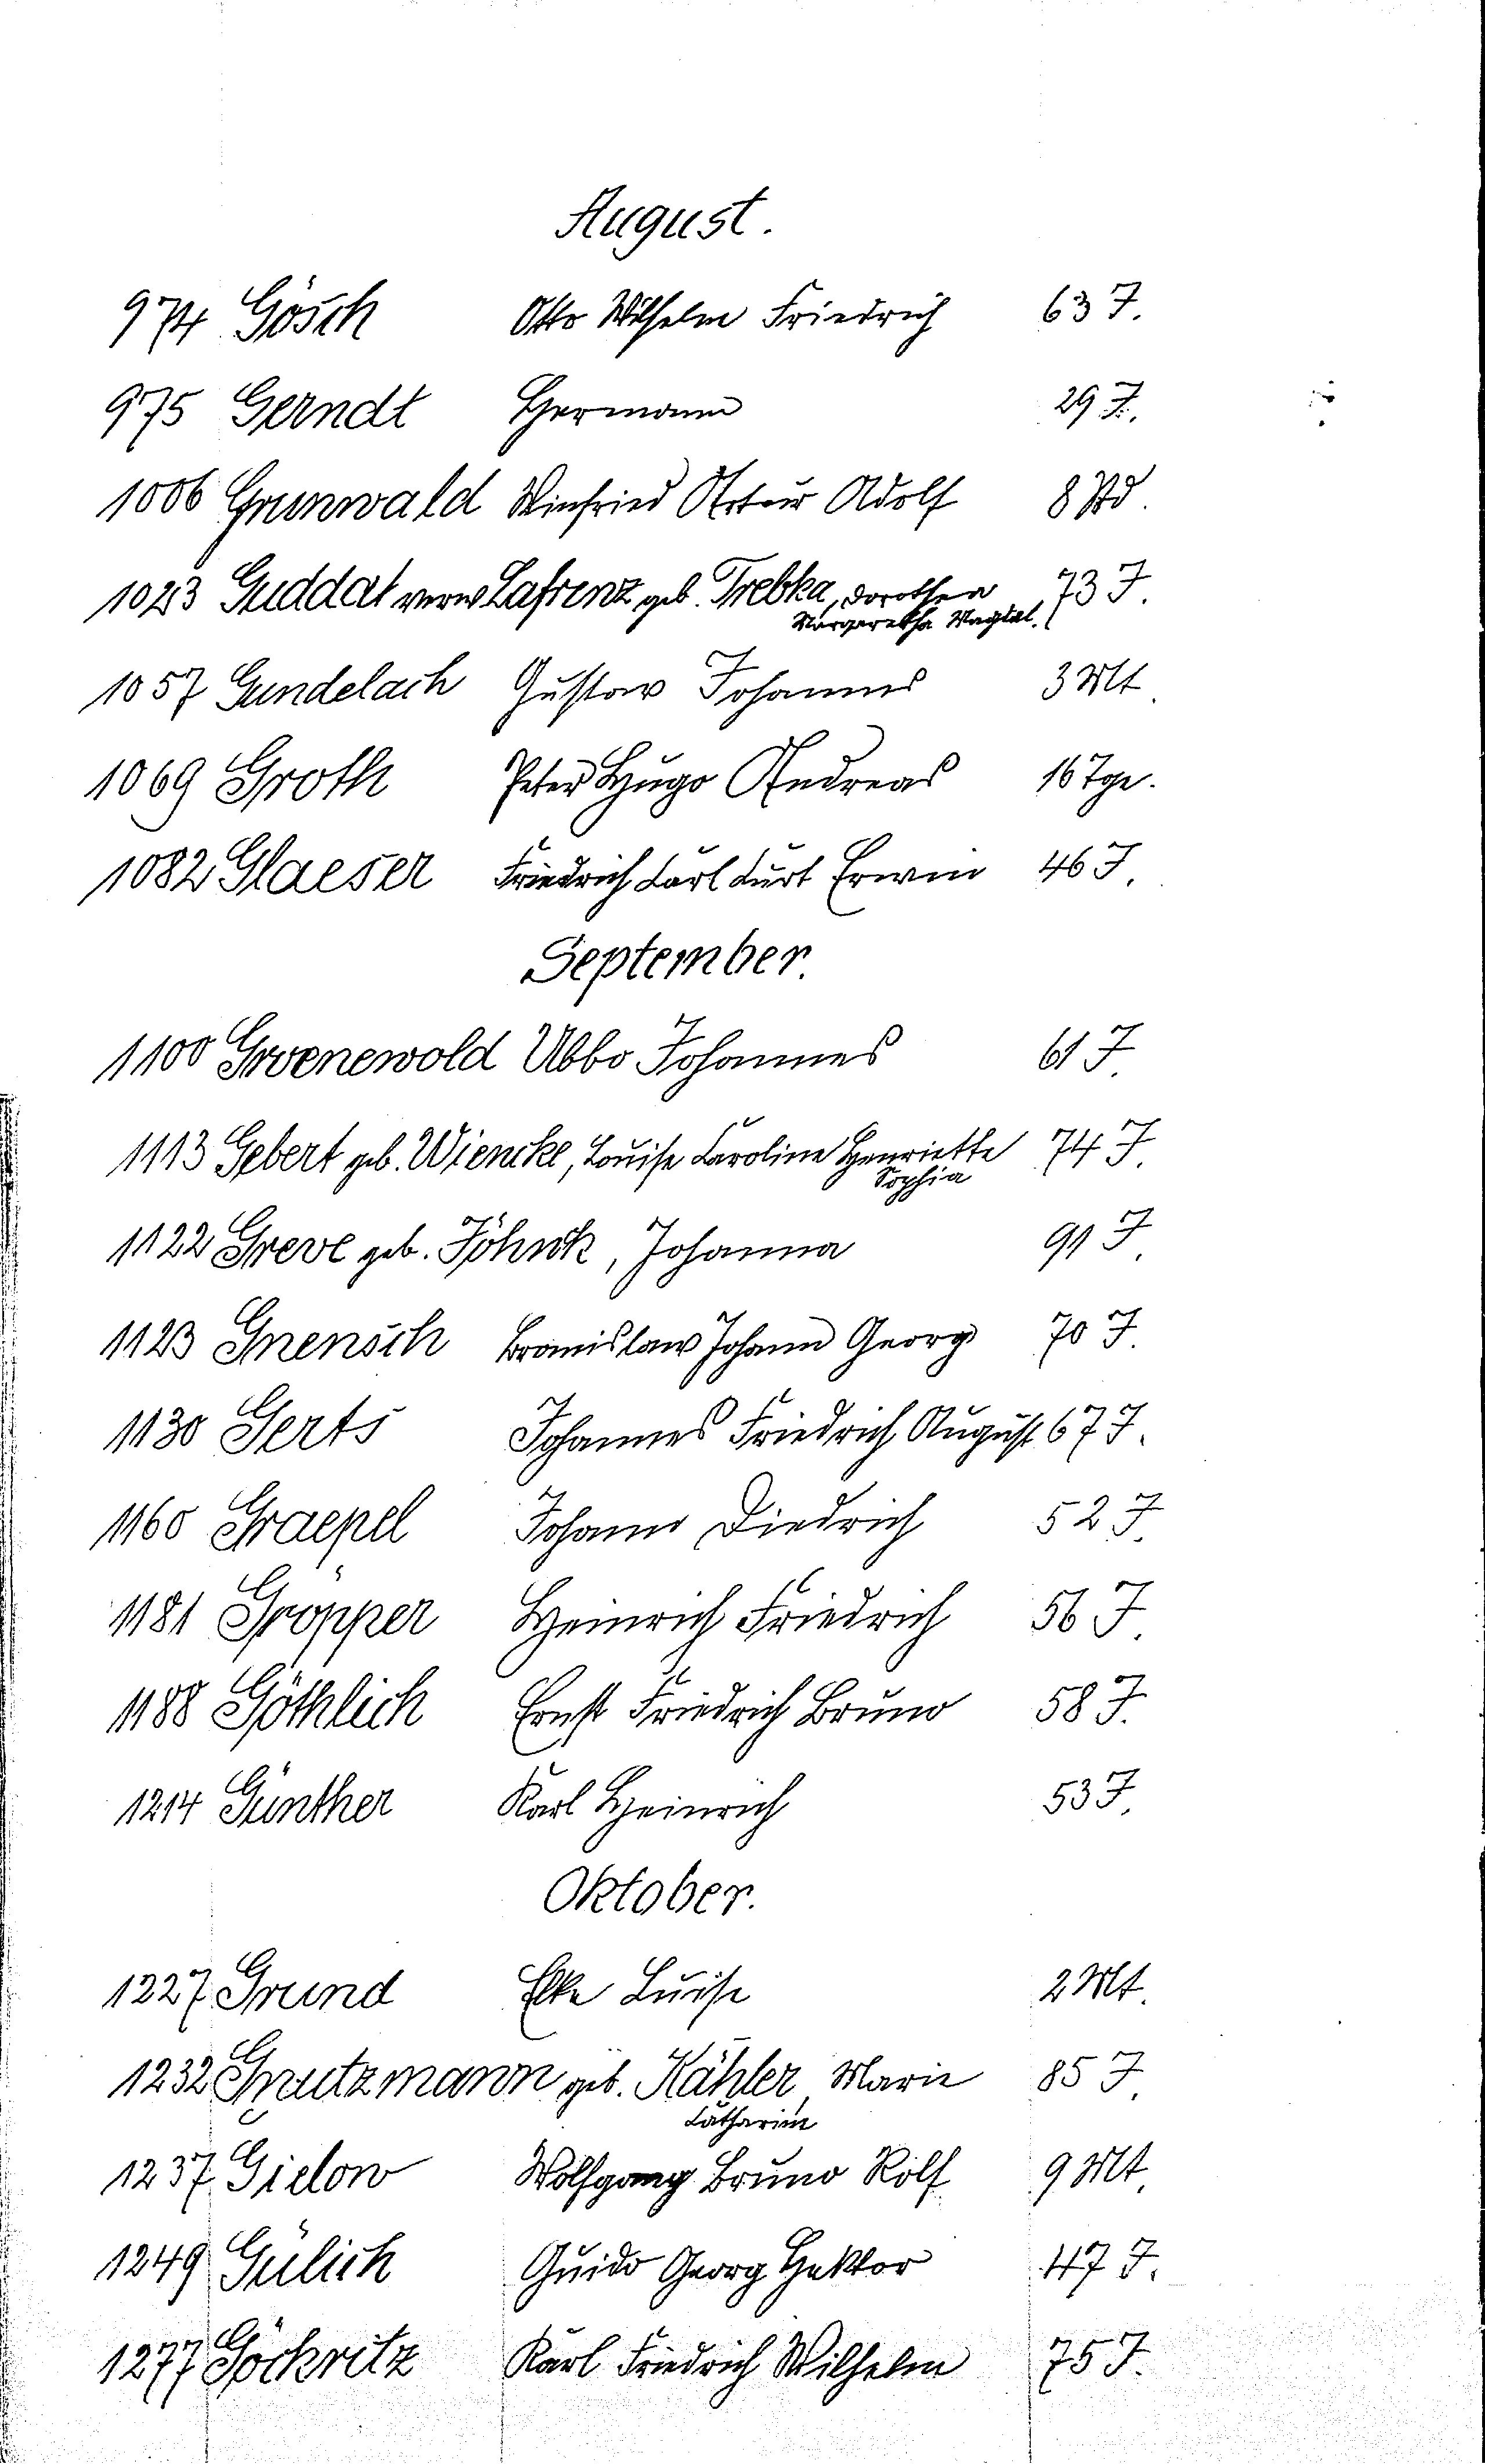 August.
974 Gösch Otto Wilhelm Friedrich 63 J.
975 Gerndt Hermann 29 J.
1006 Grunwald Winfried Artur Adolf 8 Std.
1023 Guddat verw Lafrenz geb. Trebka, Dorothea 73 J.
Margaretha Magdal.
1057 Gundelach Gustav Johannes 3 Mt.
1069 Groth Peter Hugo Andreas 16 Tge.
1082 Glaeser Friedrich Carl Curt Erwin 46 J.
September.
1100 Groenewold Ubbo Johannes 61 J.
1113 Gebert geb. Wiencke, Louise Caroline Henriette 74 J.
Sophia
1122 Greve geb. Jöhnk, Johanna 91 J.
1123 Gnensch Bronislaw Johann Georg 70 J.
1130 Gerts Johannes Friedrich August 67 J.
1160 Graepel Johann Diedrich 52 J.
1181 Gröpper Heinrich Friedrich 56 J.
1188 Göthlich Ernst Friedrich Bruno 58 J.
1214 Günther Karl Heinrich 53 J.
Oktober.
1227 Grund Elke Luise 2 Mt.
1232 Grützmann geb. Kähler Marie 85 J.
Catharine
1237 Gielow Wolfgang Bruno Rolf 9 Mt.
1249 Gülich Guido Georg Hektor 47 J.
1277 Göckritz Karl Friedrich Wilhelm 75 J.